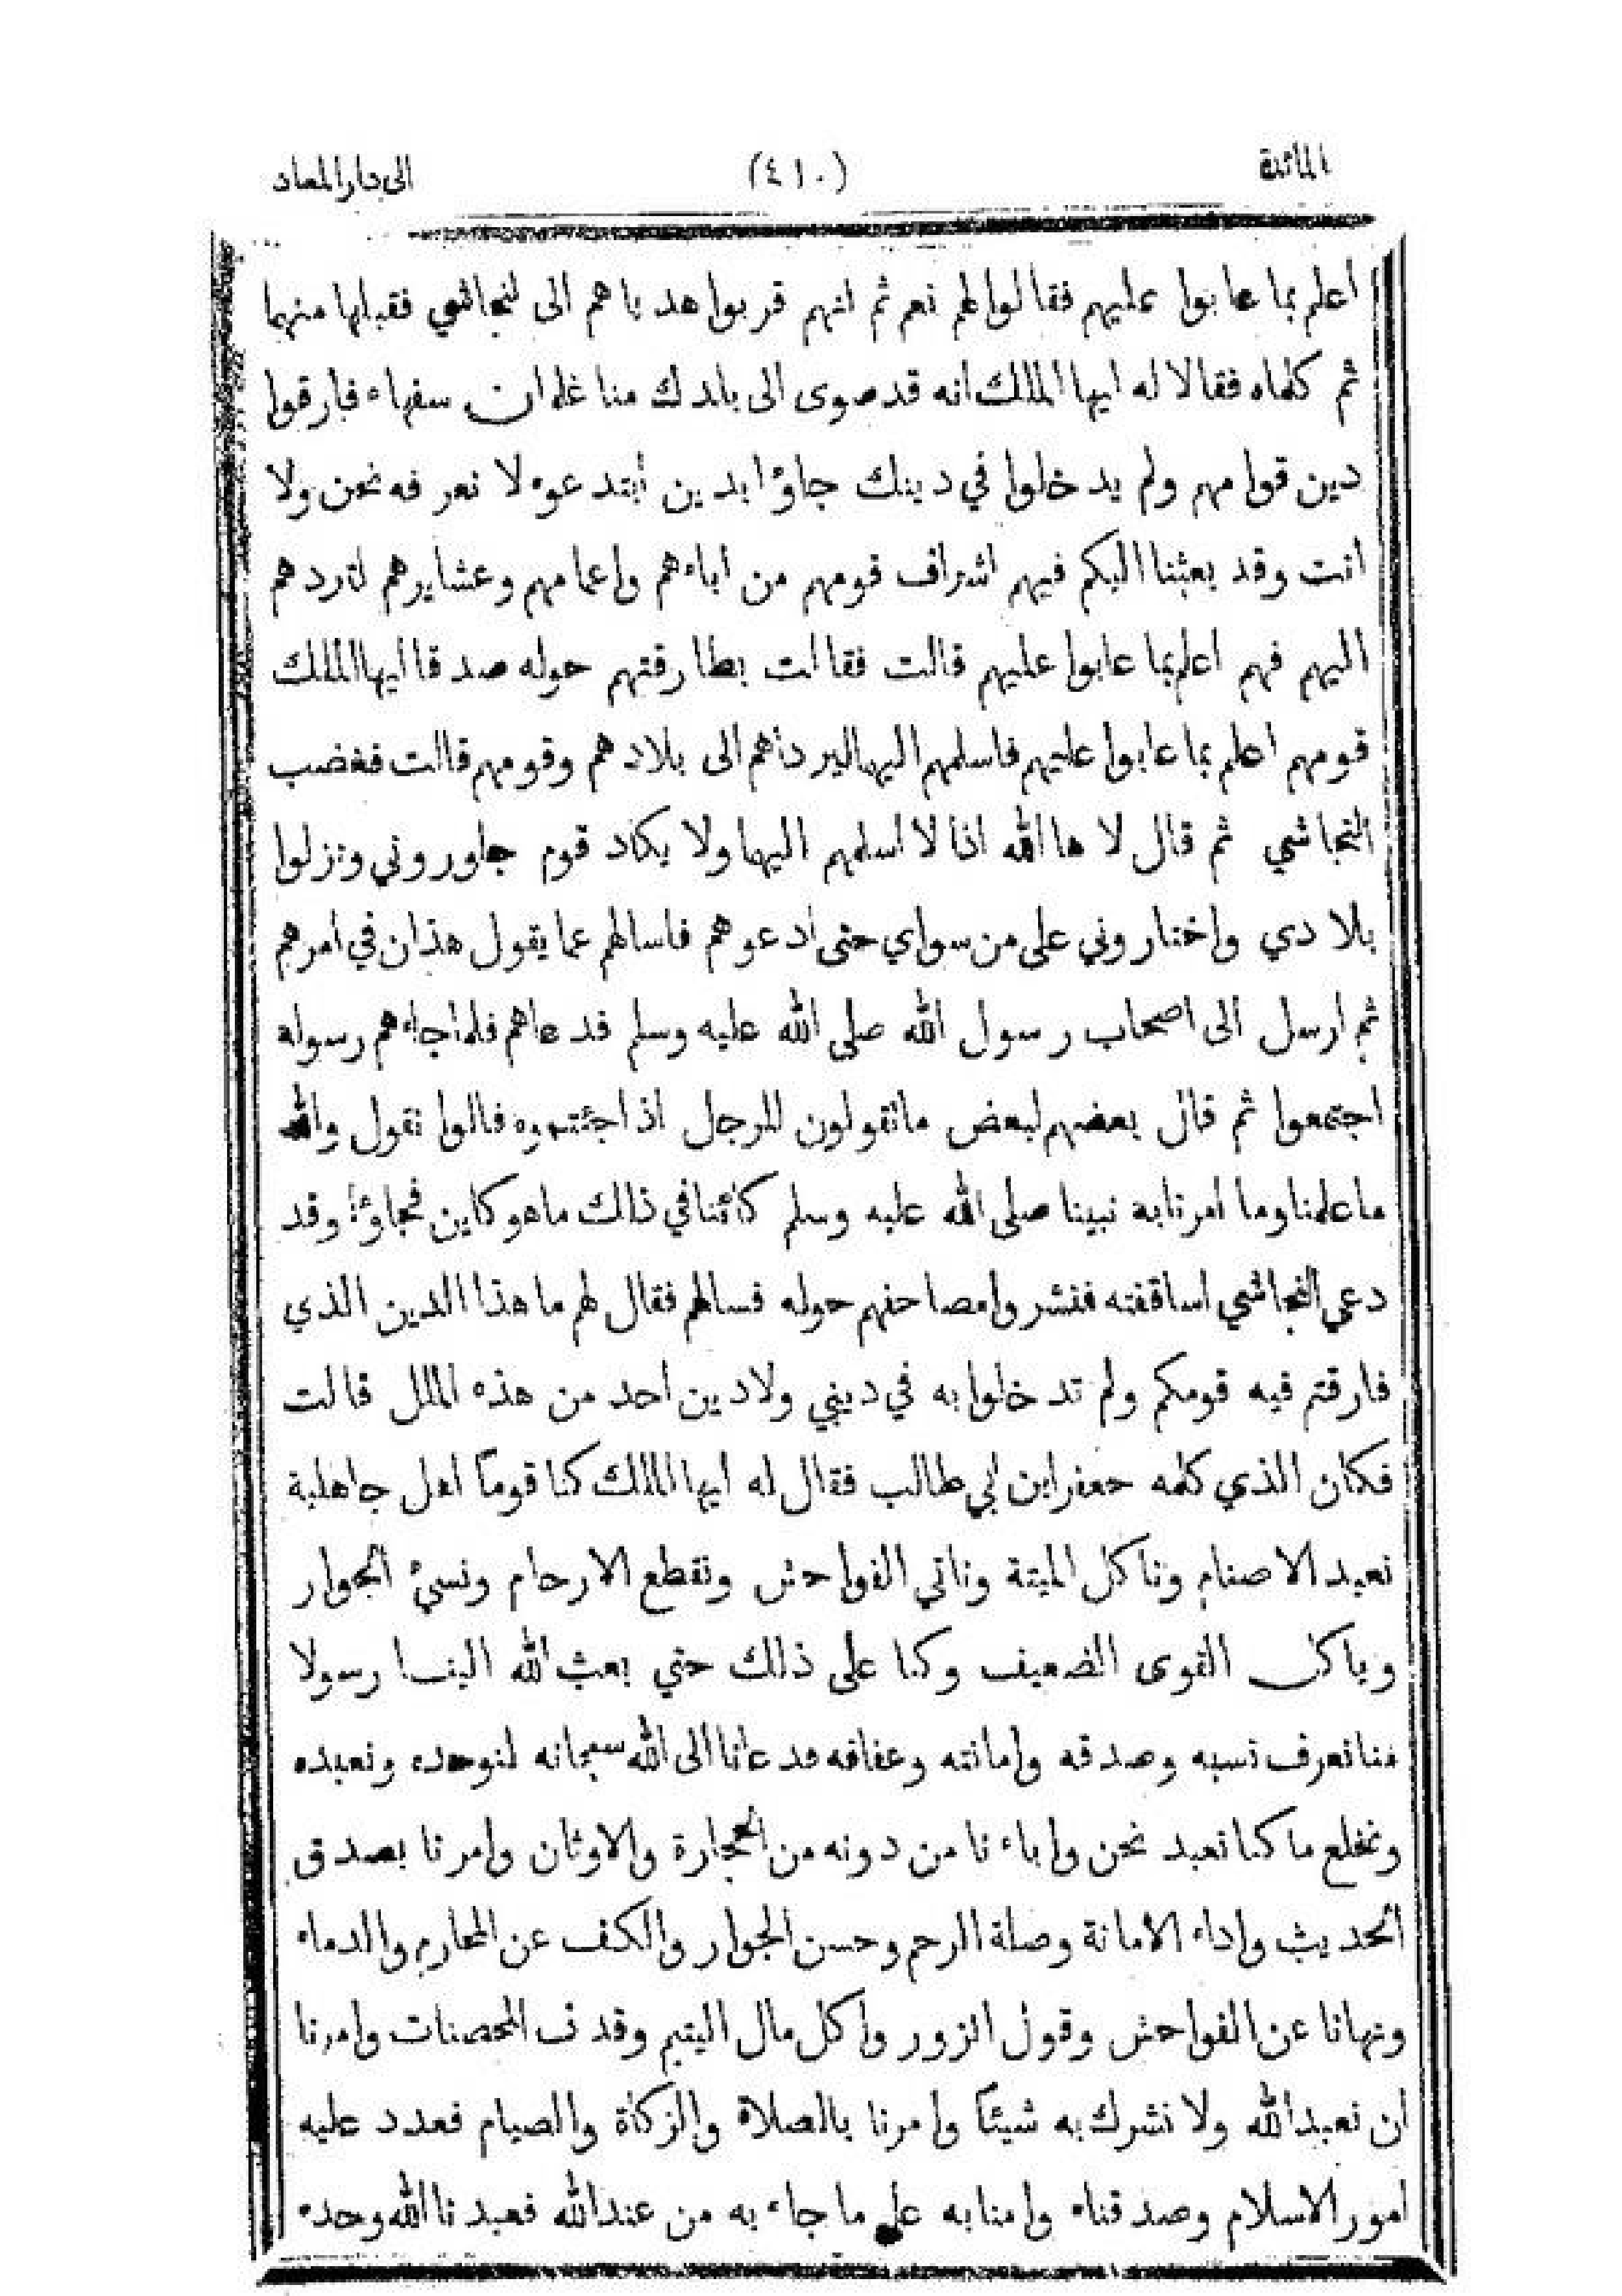 المائدة (٤١٠) الى دار المعاد
اعلم بما عابوا عليهم فقالوا لهم نعم ثم انهم قربوا هداياهم الى النجاشي فقبلها منهما
ثم كلماه فقالا له ايها الملك انه قد صوى الى بلدك منا غلمان سفهاء فارقوا
دين قوامهم ولم يدخلوا في دينك جاؤا بدين أبتدعوه لا نعرفه نحن ولا
انت وقد بعثنا اليكم فيهم اشراف قومهم من اباءهم واعمامهم وعشايرهم لتردهم
اليهم فهم اعلم بما عابوا عليهم قالت فقالت بطارقتهم حوله صدقا ايها الملك
قومهم اعلم بما عابوا عليهم فاسلمهم اليهما ليردأهم الى بلادهم وقومهم قالت فغضب
النجاشي ثم قال لا ها الله اذا لا اسلمهم اليهما ولا يكاد قوم جاوروني ونزلوا
بلادي واختاروني على من سواي حتى ادعوهم فاسالهم عما يقول هذان في امرهم
ثم ارسل الى اصحاب رسول الله صلى الله عليه وسلم فدعاهم فلما جاءهم رسوله
اجتمعوا ثم قال بعضهم لبعض ما تقولون للرجل اذا جئتموه قالوا نقول والله
ما علمنا وما امرنا به نبينا صلى الله عليه وسلم كائنا في ذالك ما هو كاين فجاؤا وقد
دعى النجاشي اساقفته فنشروا مصاحفهم حوله فسالهم فقال لهم ما هذا الدين الذي
فارقتم فيه قومكم ولم تدخلوا به في ديني ولا دين احد من هذه الملل قالت
فكان الذي كلمه جعفر ابن ابي طالب فقال له ايها الملك كنا قوماً اهل جاهلية
نعبد الاصنام وناكل الميتة وناتي الفواحش ونقطع الارحام ونسئ الجوار
وياكل القوى الضعيف وكنا على ذلك حتي بعث الله الينا رسولا
منا نعرف نسبه وصدقه وامانته وعفافه فدعانا الى الله سبحانه لنوحده ونعبده
ونخلع ما كنا نعبد نحن واباءنا من دونه من الحجارة والاوثان وامرنا بصدق
الحديث واداء الامانة وصلة الرحم وحسن الجوار والكف عن المحارم والدماء
ونهانا عن الفواحش وقول الزور واكل مال اليتيم وقذف المحصنات وامرنا
ان نعبد الله ولا نشرك به شيئاً وامرنا بالصلاة والزكاة والصيام فعدد عليه
امور الاسلام وصدقناه وامنا به على ما جاء به من عند الله فعبدنا الله وحده